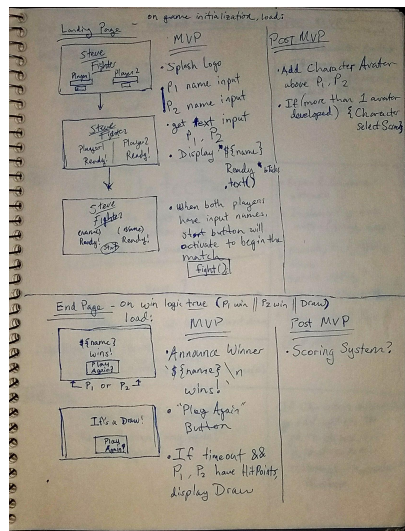 on game initialization, load:
Landing Page -
Steve
Fighter
Player1 Player2
Steve
Fighter
Player1 Player2
Ready! Ready!
Steve
Fighter
(Name) (Name)
Ready! Ready!
Start
MVP
• Splash Logo
P1 name input
P2 name input
• get text input
P1, P2
• Display `${name}
Ready`
.text()
• When both players
have input names,
start button will
activate to begin the
match
fight()
Post MVP
• Add Character Avatar
above P1, P2
• If (more than 1 avatar
developed) { Character
Select Screen
End Page - on win logic true (P1 win || P2 win || Draw)
load:
${name}
wins!
Play
Again?
P1 or P2
It's a Draw!
Play
Again?
MVP
• Announce Winner
`${name} \n
wins!`
• "Play Again"
Button
• If timeout &&
P1, P2 have HitPoints,
display Draw
Post MVP
• Scoring System?